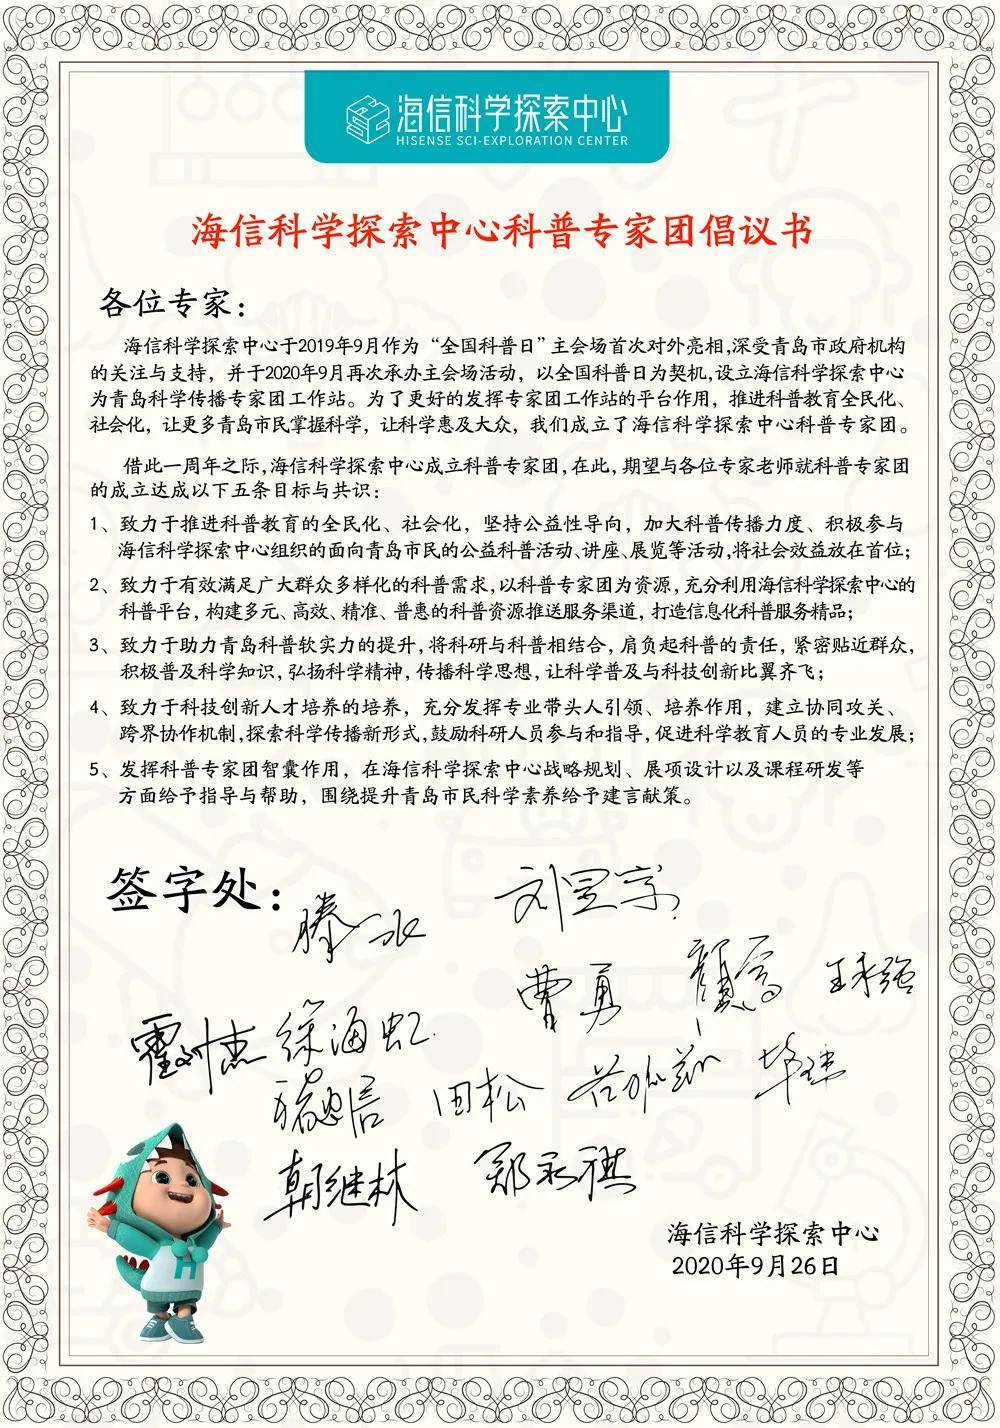 海信科学探索中心
HISENSE SCI-EXPLORATION CENTER
海信科学探索中心科普专家团倡议书
各位专家：
海信科学探索中心于2019年9月作为“全国科普日”主会场首次对外亮相,深受青岛市政府机构
的关注与支持，并于2020年9月再次承办主会场活动，以全国科普日为契机,设立海信科学探索中心
为青岛科学传播专家团工作站。为了更好的发挥专家团工作站的平台作用，推进科普教育全民化、
社会化，让更多青岛市民掌握科学，让科学惠及大众，我们成立了海信科学探索中心科普专家团。
借此一周年之际,海信科学探索中心成立科普专家团,在此,期望与各位专家老师就科普专家团
的成立达成以下五条目标与共识：
1、致力于推进科普教育的全民化、社会化，坚持公益性导向，加大科普传播力度、积极参与
海信科学探索中心组织的面向青岛市民的公益科普活动、讲座、展览等活动,将社会效益放在首位；
2、致力于有效满足广大群众多样化的科普需求,以科普专家团为资源,充分利用海信科学探索中心的
科普平台，构建多元、高效、精准、普惠的科普资源推送服务渠道，打造信息化科普服务精品；
3、致力于助力青岛科普软实力的提升,将科研与科普相结合，肩负起科普的责任，紧密贴近群众，
积极普及科学知识，弘扬科学精神，传播科学思想，让科学普及与科技创新比翼齐飞；
4、致力于科技创新人才培养的培养，充分发挥专业带头人引领、培养作用，建立协同攻关、
跨界协作机制,探索科学传播新形式,鼓励科研人员参与和指导,促进科学教育人员的专业发展；
5、发挥科普专家团智囊作用，在海信科学探索中心战略规划、展项设计以及课程研发等
方面给予指导与帮助，围绕提升青岛市民科学素养给予建言献策。
签字处：
曹勇
王永强
徐海虹
田松
郑永祺
H
海信科学探索中心
2020年9月26日